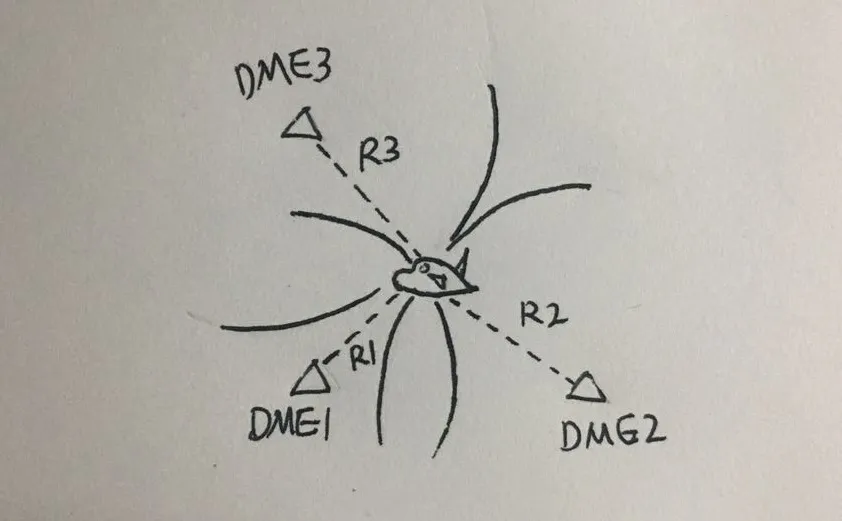 DME3
R3
R2
R1
DME1
DME2